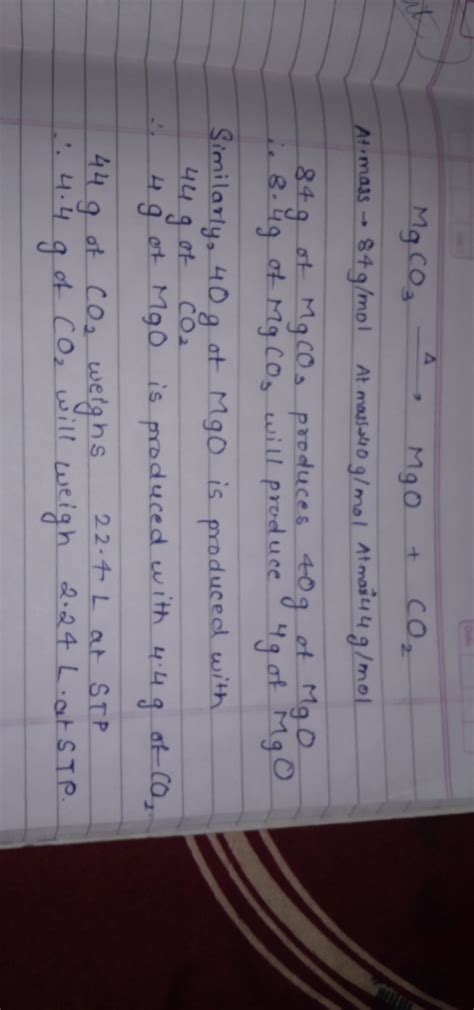 MgCO₃ →Δ MgO + CO₂
At.mass → 84g/mol At mass→40g/mol At mas→44g/mol
84g of MgCO₃ produces 40g of MgO
∴ 8.4g of MgCO₃ will produce 4g of MgO
Similarly, 40g of MgO is produced with
44g of CO₂
∴ 4g of MgO is produced with 4.4g of CO₂.
44g of CO₂ weighs 22.4L at STP
∴ 4.4g of CO₂ will weigh 2.24L.at STP.